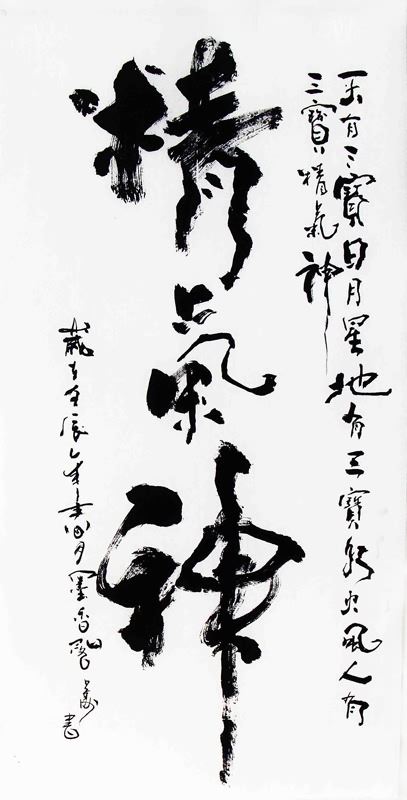 天有三寶日月星地有三寶水火風人有
三寶精氣神
精氣神
歲在壬辰年月墨香書